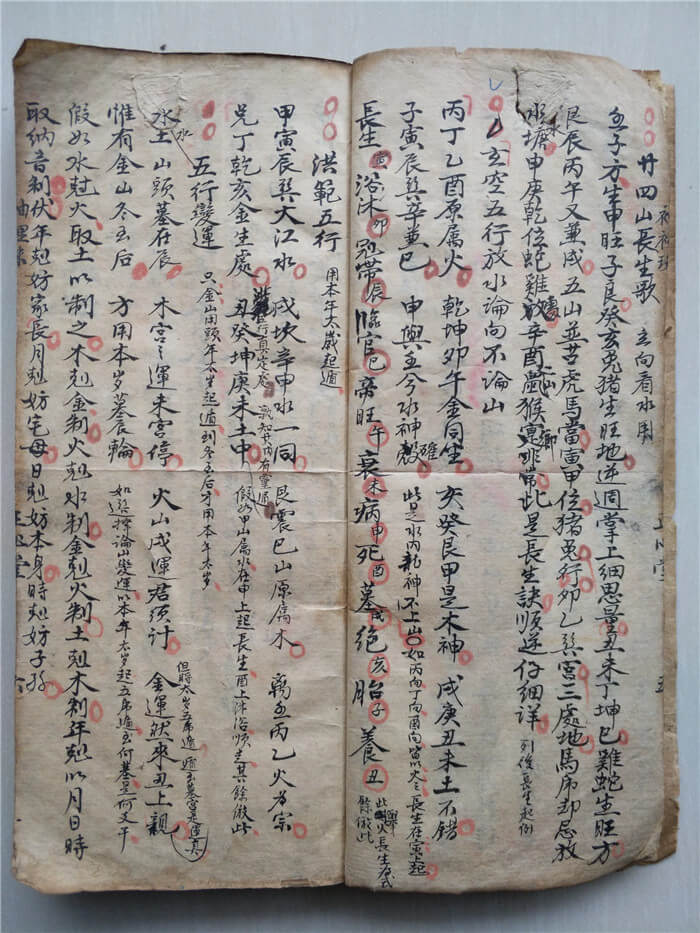 廿四山長生歌 立向看水用
壬子方生申旺子艮癸亥兎猪生旺地逆週掌上细思量丑未丁坤巳雞蛇生旺方
艮辰丙午又兼戌五山並苦虎馬當寅甲位猪兎行卯乙巽宮三處地馬虎却忌放
水塘申庚乾位蛇雞辛酉鼠猴鄉非常此是長生訣順逆仔細詳 列後長生起例
玄空五行放水論向不論山
丙丁乙酉原属火 乾坤卯午金同坐 亥癸艮甲是木神 戌庚丑未土不錯
子寅辰巽辛兼巳 申與壬今水神 此是水内龍神不上山 如丙向丁向酉向皆以火之長生在寅上起
長生寅 沐浴卯 冠帶辰 臨官巳 帝旺午 衰未 病申 死酉 墓戌 絶亥 胎子 養丑 此火長生式 餘倣此
洪範五行 用本年太歲起遁
甲寅辰巽大江水 戌坎辛申水一同 艮震巳山原属木 离壬丙乙火为宗
兑丁乾亥金生處 丑癸坤庚未土中 假如甲山属水在申上起長生酉上沐浴順去其餘倣此
五行變運 只金山用頭年太歲起遁到冬至后才用本年太岁
水土山頭墓在辰 木宮之運未宮停 火山戌運君須計 金運然來丑上親
惟有金山冬至后 方用本岁墓輪
假如水尅火取土以制之木尅金制火尅水制金尅火制土尅木制年尅以月日時
取纳音制伏年尅妨家長月尅妨宅母日尅妨本身時尅妨子孙